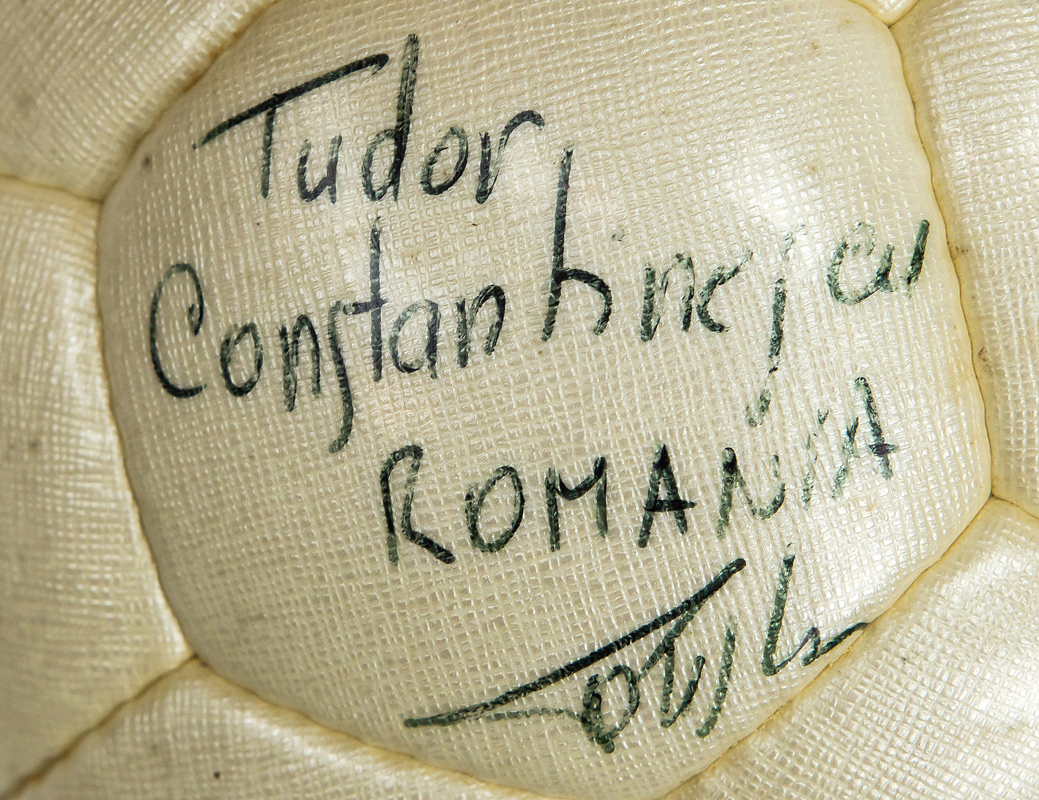 Tudor
Constantinescu
ROMANIA